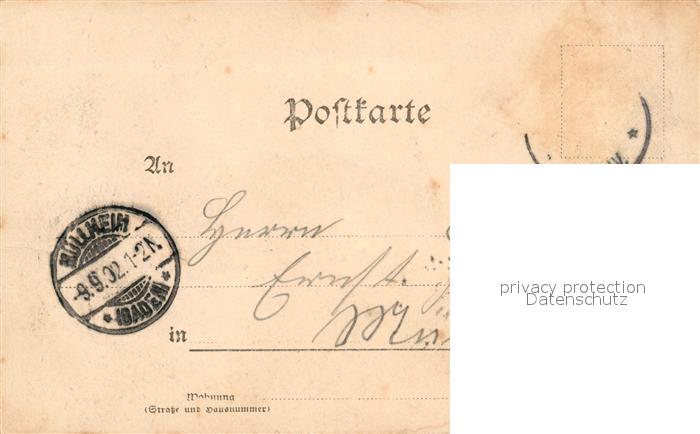 Postkarte
An
Herrn
Ernst
in
MÜLLHEIM
9.9.02.1-2N.
* (BADEN) *
Wohnung
(Straße und Hausnummer)
privacy protection
Datenschutz